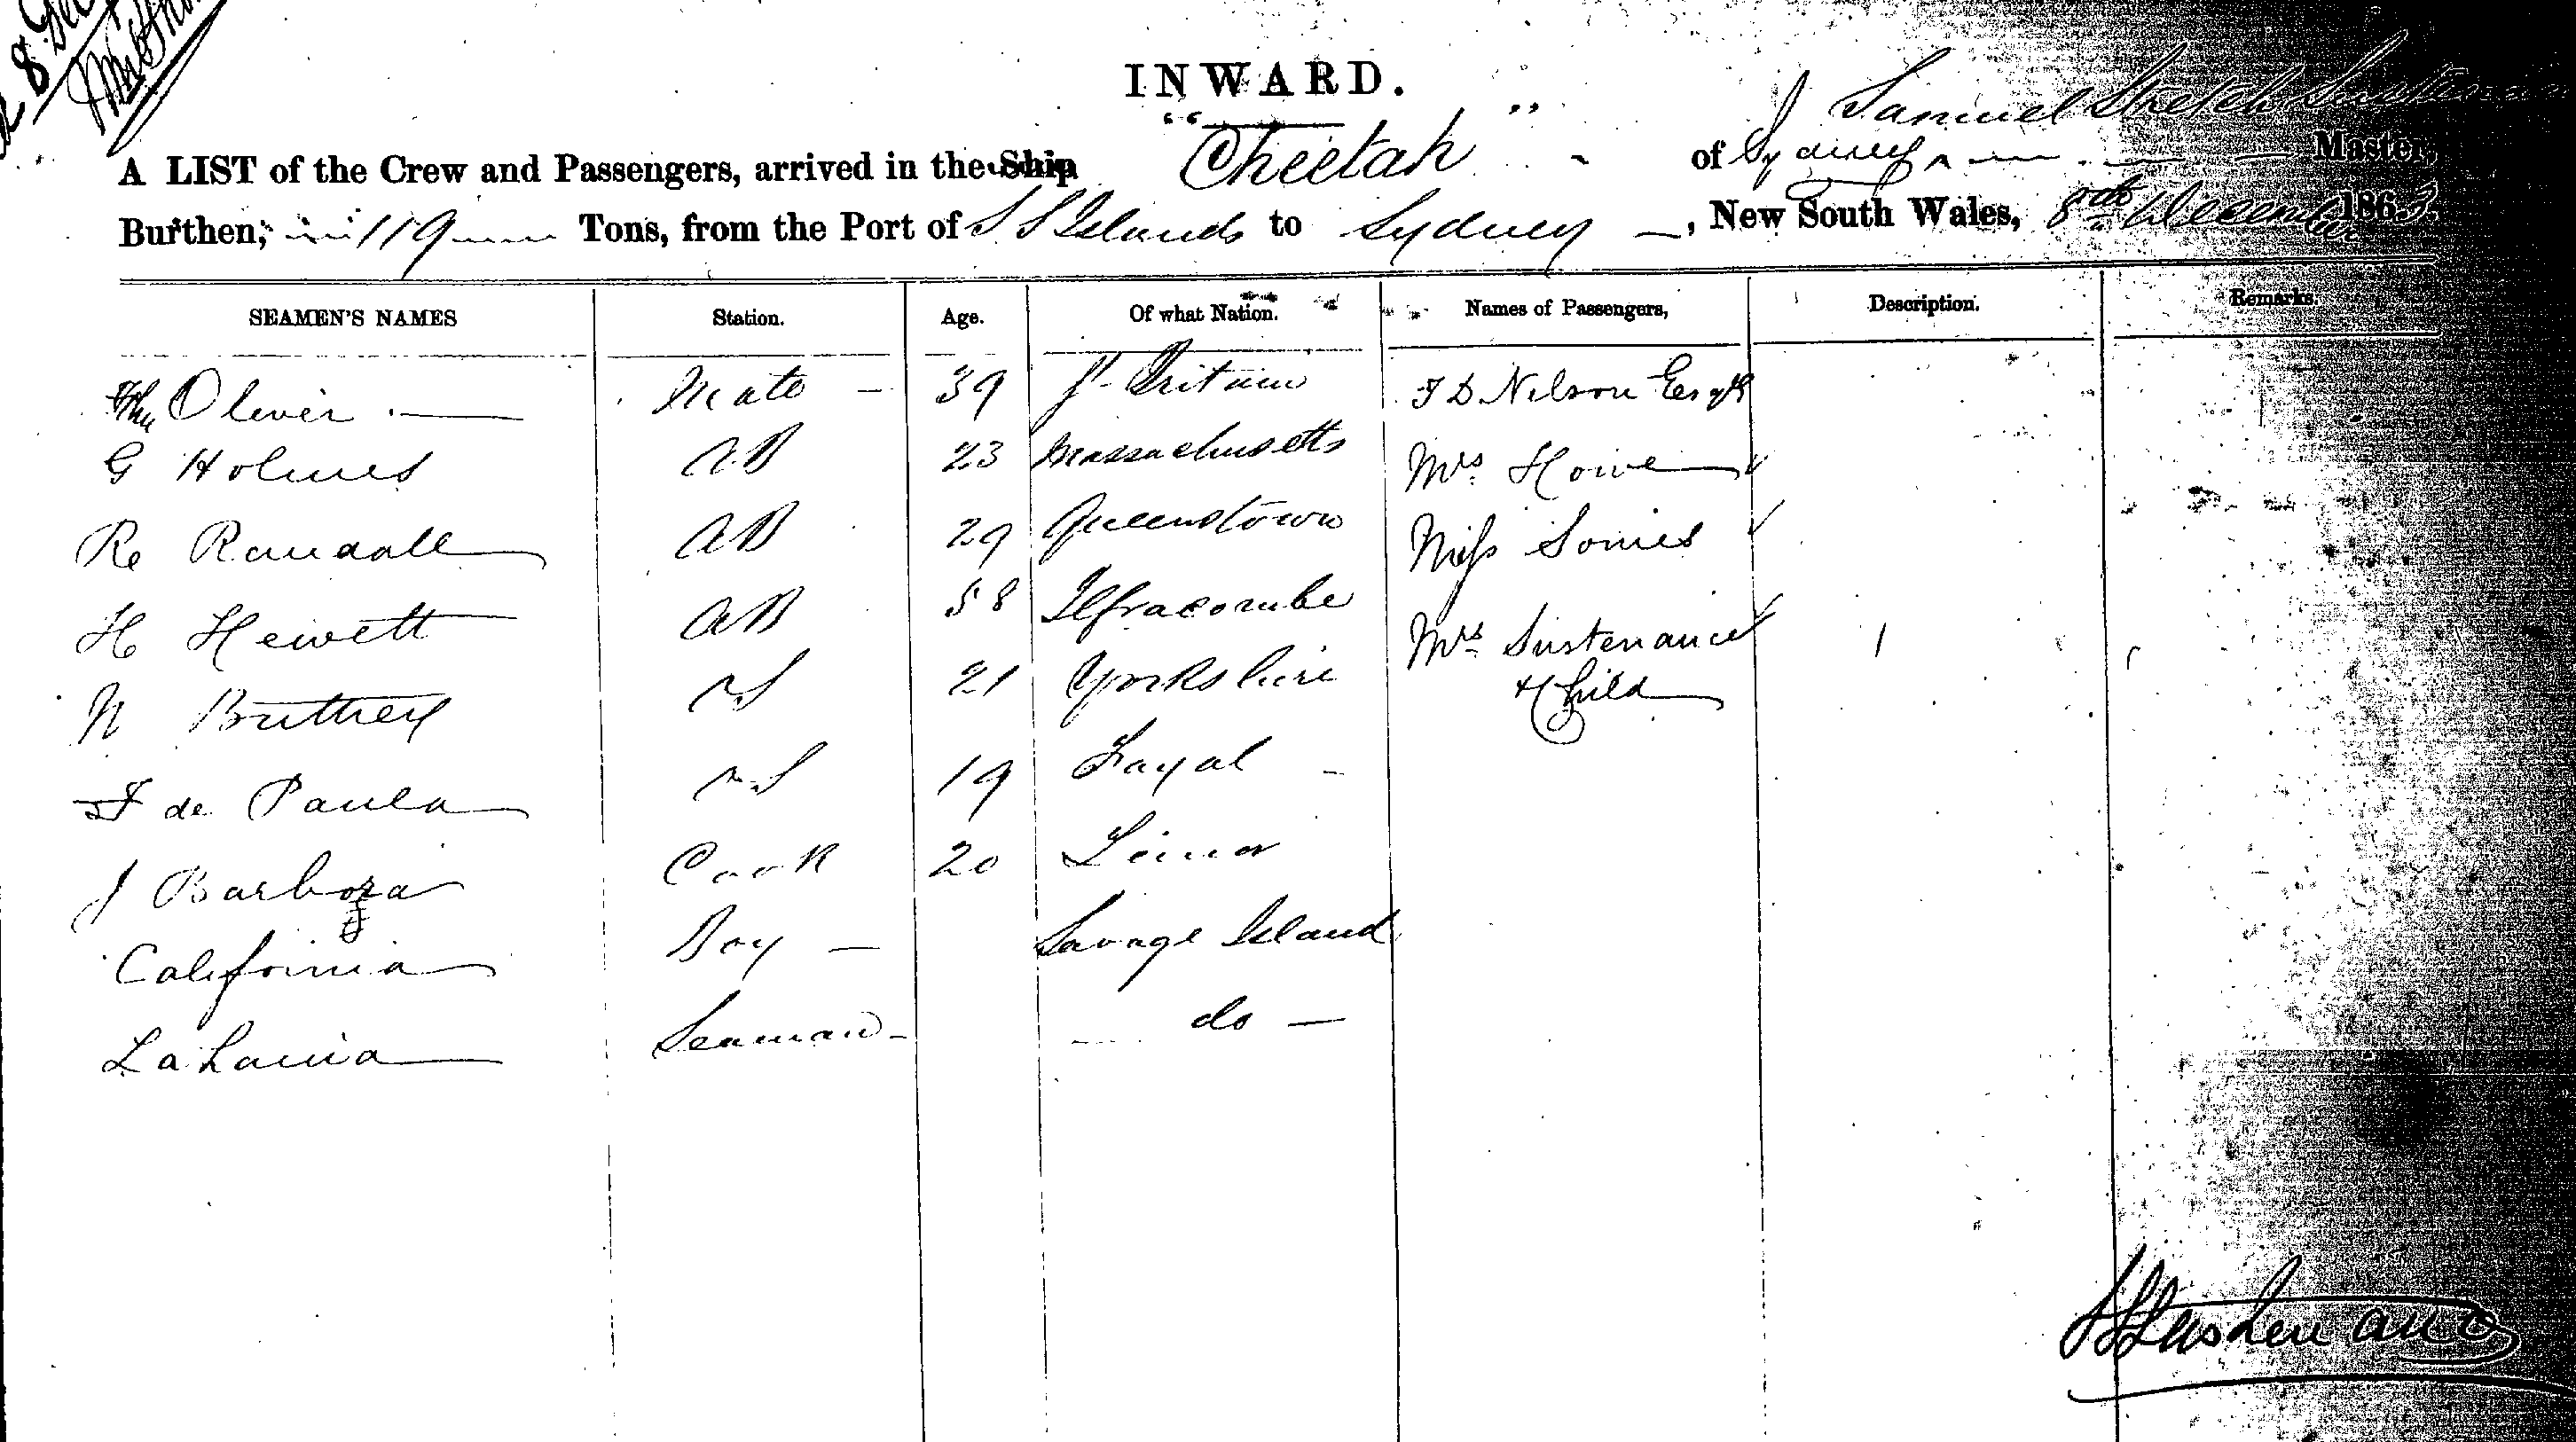 INWARD.
A LIST of the Crew and Passengers, arrived in the Ship "Cheetah" of Sydney Samuel Stretch Sustenance Master,
Burthen, 119 Tons, from the Port of S S Islands to Sydney, New South Wales, 8th December 1863
SEAMEN'S NAMES Station. Age. Of what Nation. Names of Passengers, Description. Remarks.
Oliver Mate 39 Gt Britain Nelson Esqre
G Holmes AB 23 Massachusetts Mrs Howe
R Randall AB 29 Queenstown Miss Somes
H Hewett AB 58 Ilfracombe Mrs Sustenance
N Buttrey OS 21 Yorkshire & Child
F de Paula OS 19 Fayal
J Barboza Cook 20 Lima
California Boy Savage Island
Seaman do
S S Sustenance